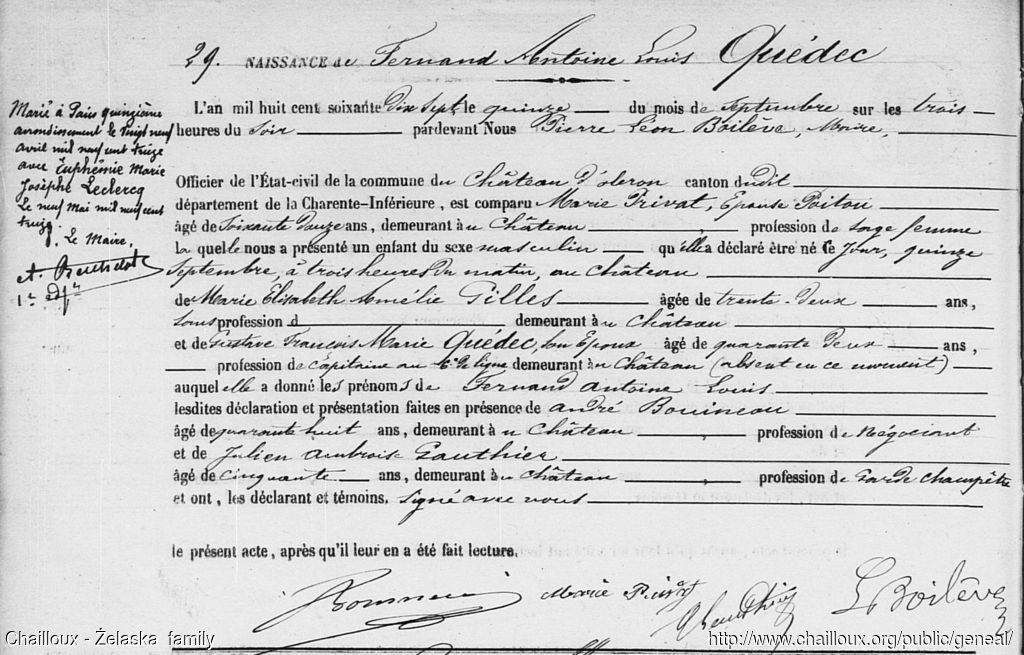 29. NAISSANCE de Fernand Antoine Louis Quédec
L'an mil huit cent soixante dix sept, le quinze du mois de Septembre sur les trois
heures du Soir pardevant Nous Pierre Léon Boilève, Maire,
Officier de l'État-civil de la commune du Château d'oleron canton dudit
département de la Charente-Inférieure, est comparu Marie Privat, Epouse Poitou
âgé de Soixante Douze ans, demeurant à u Château profession de Sage femme
la quelle nous a présenté un enfant du sexe masculin qu'elle a déclaré être né ce Jour, quinze
Septembre, à trois heures du matin, au Château
de Marie Elisabeth Amélie Gilles âgée de trente-deux ans,
sans profession d demeurant à u Château
et de Gustave François Marie Quédec, son Epoux âgé de quarante deux ans,
profession de Capitaine au de ligne demeurant à u Château (absent en ce moment)
auquel elle a donné les prénoms de Fernand Antoine Louis
lesdites déclaration et présentation faites en présence de andré Bouineau
âgé de quarante huit ans, demeurant à u Château profession de Négociant
et de Julien Ambroise Gauthier
âgé de cinquante ans, demeurant à u Château profession de Garde champêtre
et ont, les déclarant et témoins, signé avec nous
le présent acte, après qu'il leur en a été fait lecture.
Marié à Paris quinzième
arrondissement le vingt neuf
avril mil neuf cent treize
avec Euphémie Marie
Josèphe Leclercq
Le neuf Mai mil neuf cent
treize. Le Maire,
1er adjt
Bouineau Marie Privat Gauthier L Boilève
Chailloux - Żelaska family
http://www.chailloux.org/public/geneal/